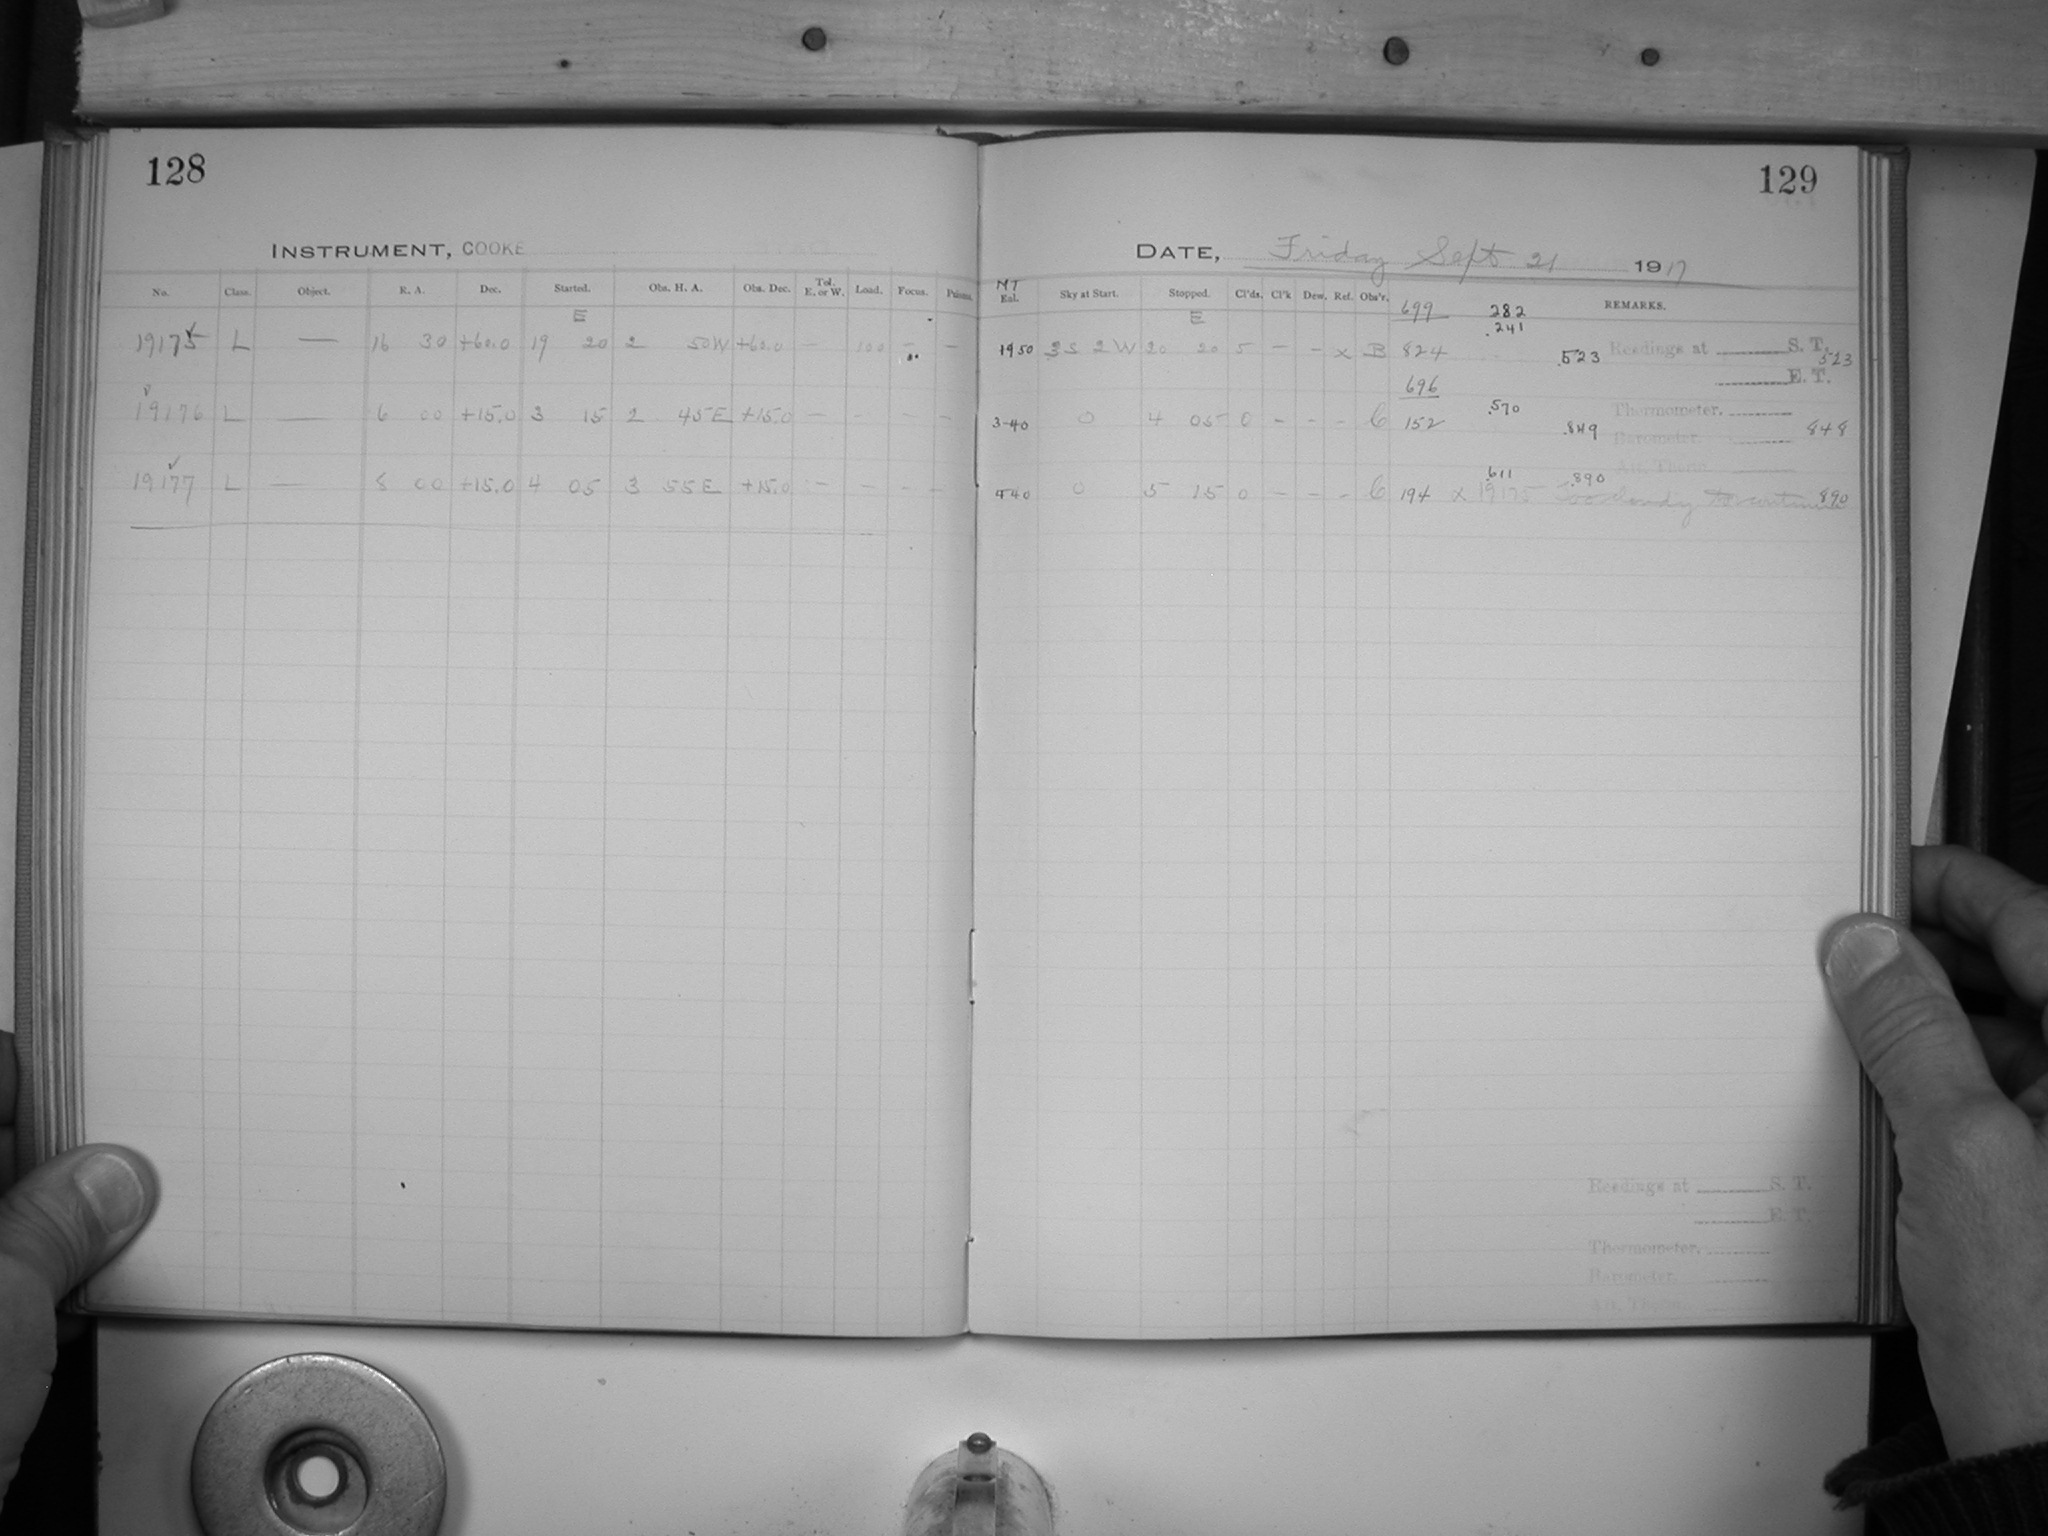 128
INSTRUMENT, COOKE
No. Class. Object. R. A. Dec. Started. Obs. H. A. Obs. Dec. Tel. E. or W. Load. Focus. Prisms.
E
19175 L — 16 30 +60.0 19 20 2 50W +60.0 — 100 — —
19176 L — 6 00 +15.0 3 15 2 45E +15.0 — - - —
19177 L — 8 00 +15.0 4 05 3 55E +15.0 — — - —
129
DATE, Friday Sept 21 1917
MT
Eql. Sky at Start. Stopped. Cl'ds. Cl'k Dew. Ref. Obs'r. 699 282 REMARKS.
E .241
1950 3S 2W 20 20 5 — - x B 824 .523 Readings at S. T. 523
696 E. T.
.570 Thermometer.
3-40 0 4 05 0 - - - C 152 .849 Barometer. 848
Att. Therm.
.611 .890
440 0 5 15 0 - - - C 194 x 19175 too cloudy to continue 890
Readings at S. T.
E. T.
Thermometer.
Barometer.
Att. Therm.